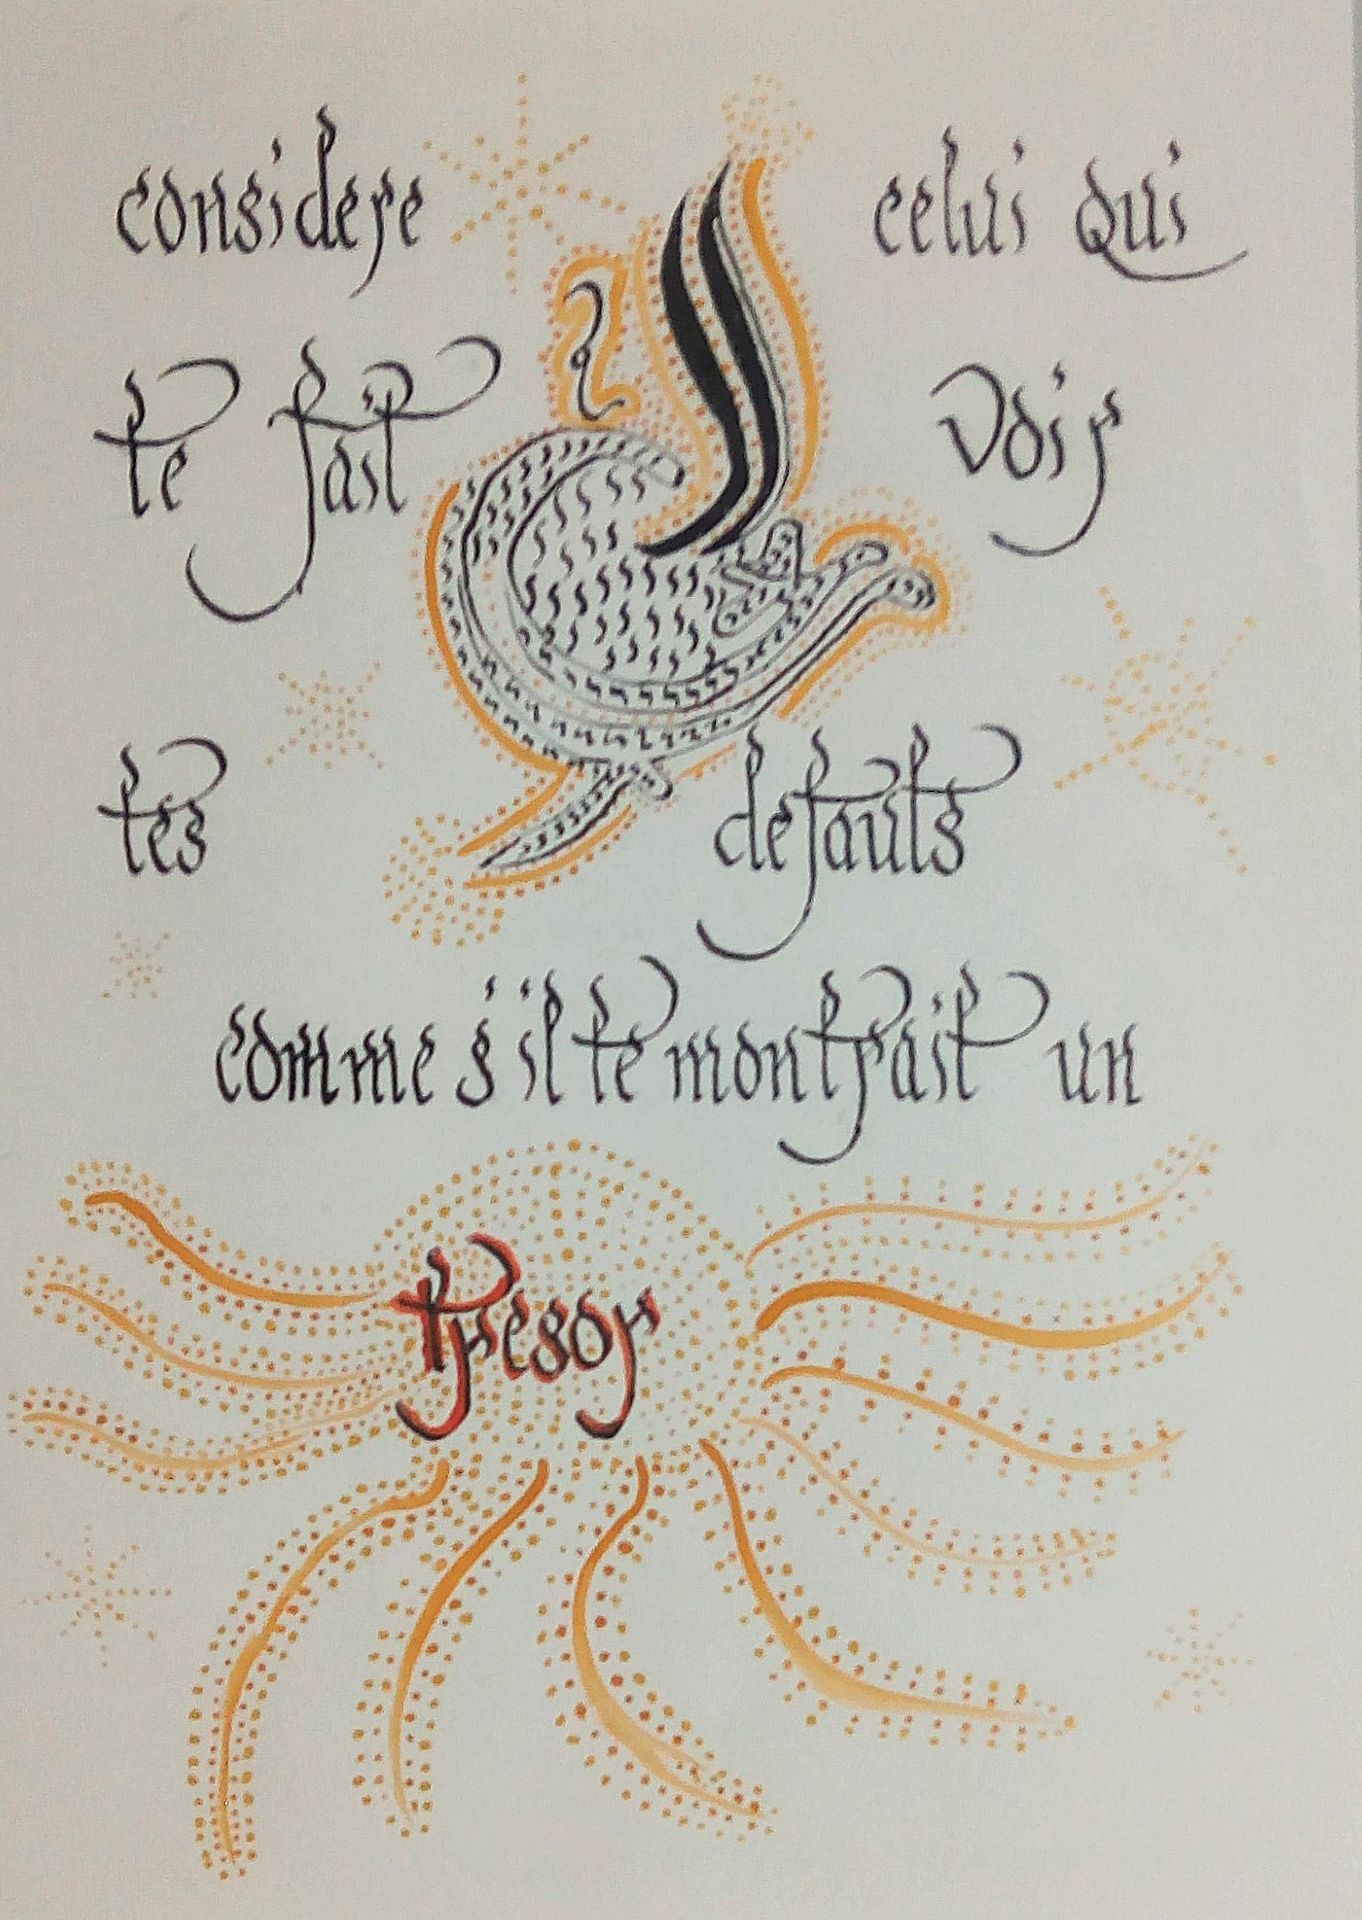 considere celui qui
te fait voir
tes defauts
comme s'il te montrait un
tresor